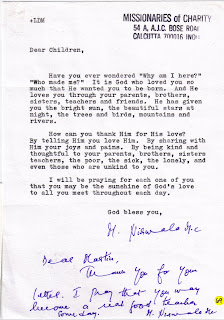 +LDM
MISSIONARIES of CHARITY
54 A, A.J.C. BOSE ROAD
CALCUTTA 700016 INDIA
Dear Children,
Have you ever wondered "Why am I here?"
"Who made me?" It is God who loved you so
much that He wanted you to be born. And He
loves you through your parents, brothers,
sisters, teachers and friends. He has given
you the bright sun, the beautiful stars at
night, the trees and birds, mountains and
rivers.
How can you thank Him for His love?
By telling Him you love Him. By sharing with
Him your joys and pains. By being kind and
thoughtful to your parents, brothers, sisters
teachers, the poor, the sick, the lonely, and
even those who are unkind to you.
I will be praying for each one of you
that you may be the sunshine of God's love
to all you meet throughout each day.
God bless you,
Sr. Nirmala M.C
Dear Martin,
Thank you for your
letter. I pray that you may
become a real good teacher
some day.
Sr. Nirmala M.C